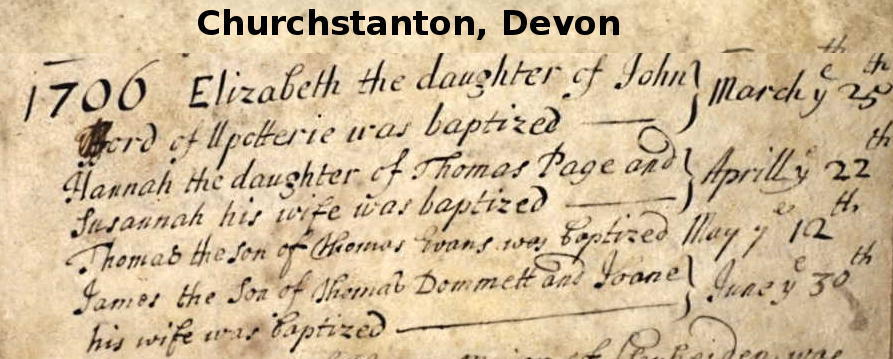 Churchstanton, Devon
1706 Elizabeth the daughter of John } March ye 25th
of Upotterie was baptized
Hannah the daughter of Thomas Page and } Aprill ye 22th
Susannah his wife was baptized
Thomas the son of Thomas Evans was baptized May ye 12th
James the Son of Thomas Dommett and Joane } June ye 30th
his wife was baptized
of